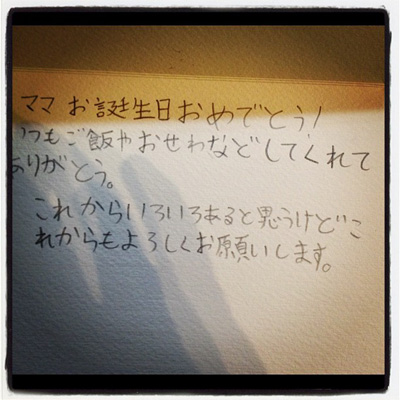 ママ お誕生日おめでとう!
いつもご飯やおせわなどしてくれて
ありがとう。
これからいろいろあると思うけどこ
れからもよろしくお願いします。